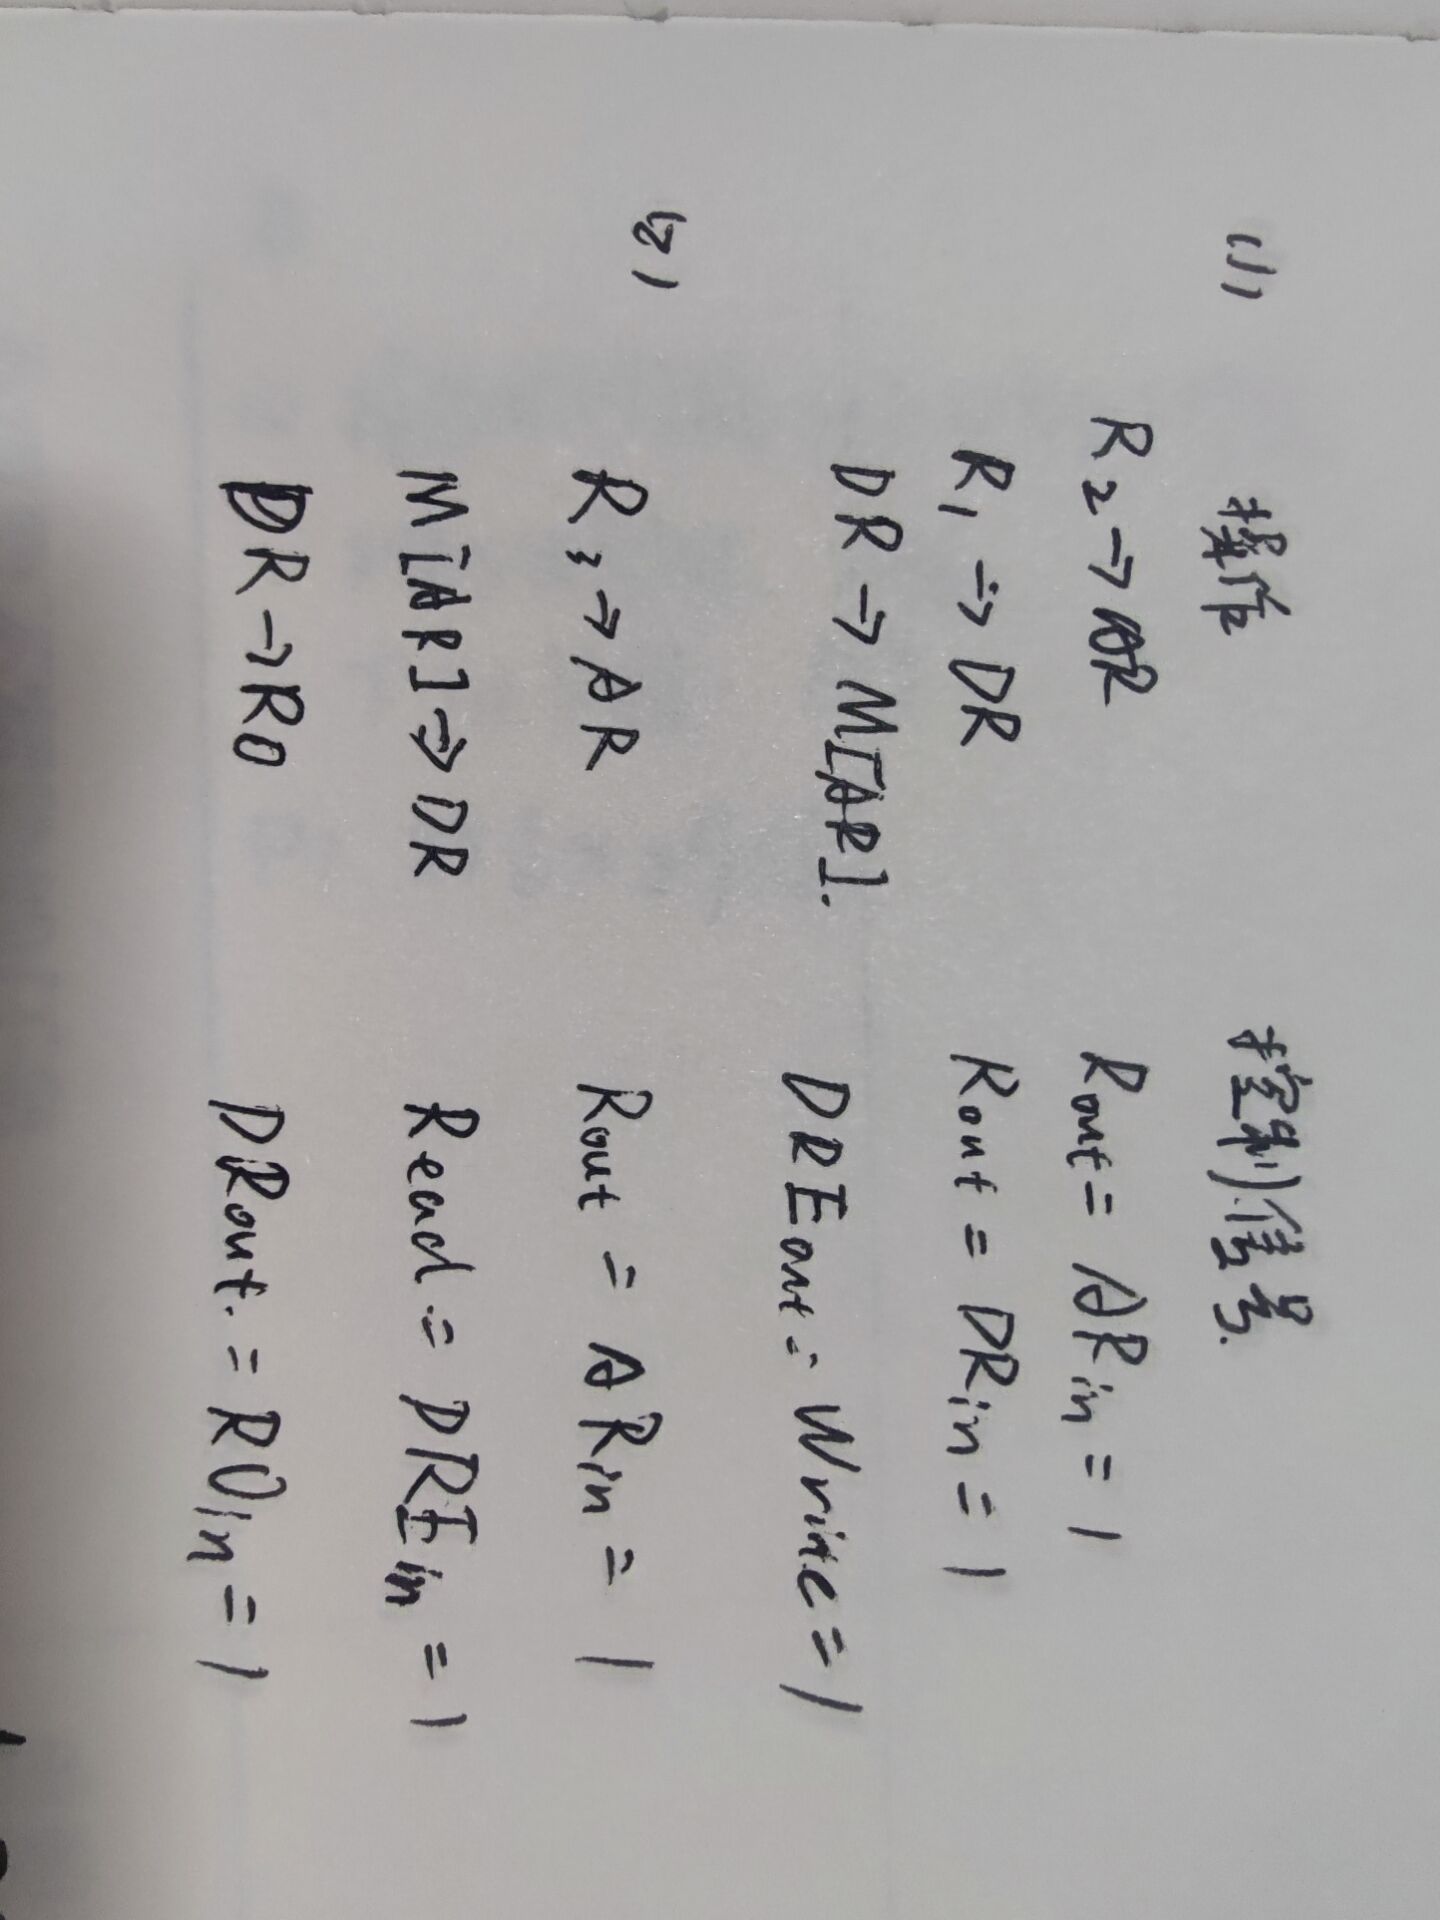 (1) 操作 控制信号.
R₂ → AR Rout = ARin = 1
R₁ → DR Rout = DRin = 1
DR → M[AR]. DREout = Write = 1
(2)
R₃ → AR Rout = ARin = 1
M[AR] → DR Read = DREin = 1
DR → R0 DRout. = R0in = 1